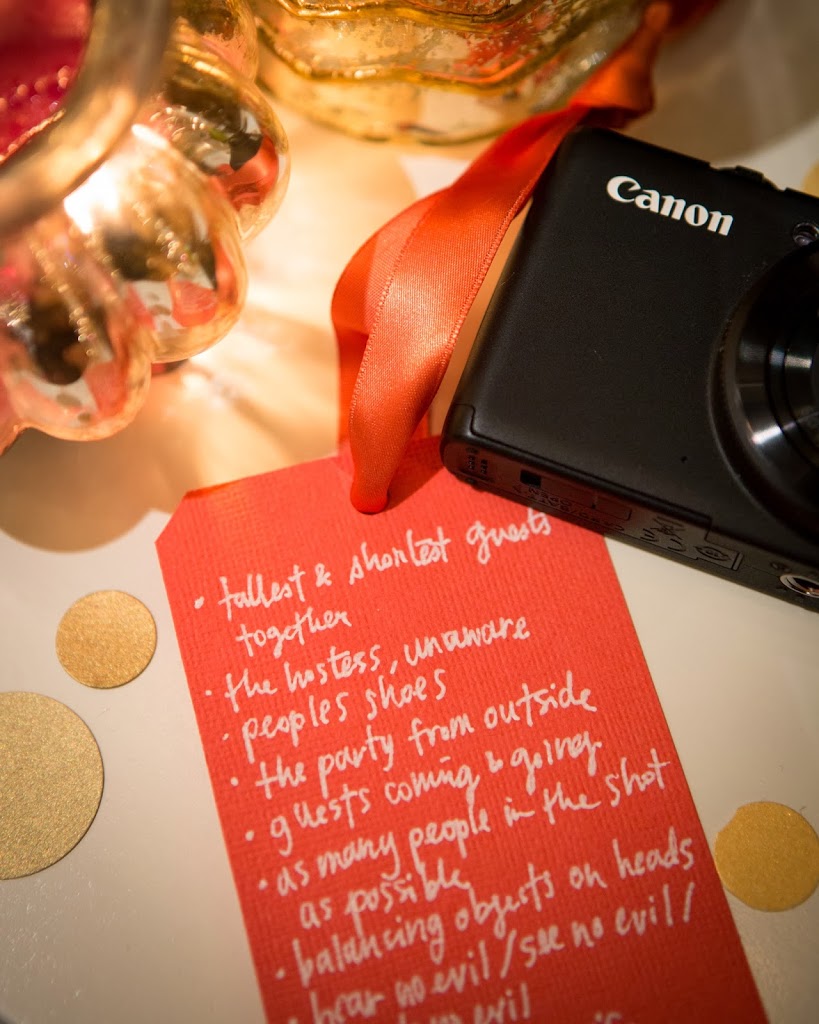 Canon
• tallest & shortest guests
together
• the hostess, unaware
• peoples shoes
• the party from outside
• guests coming & going
• as many people in the shot
as possible
• balancing objects on heads
• hear no evil/see no evil/
no evil